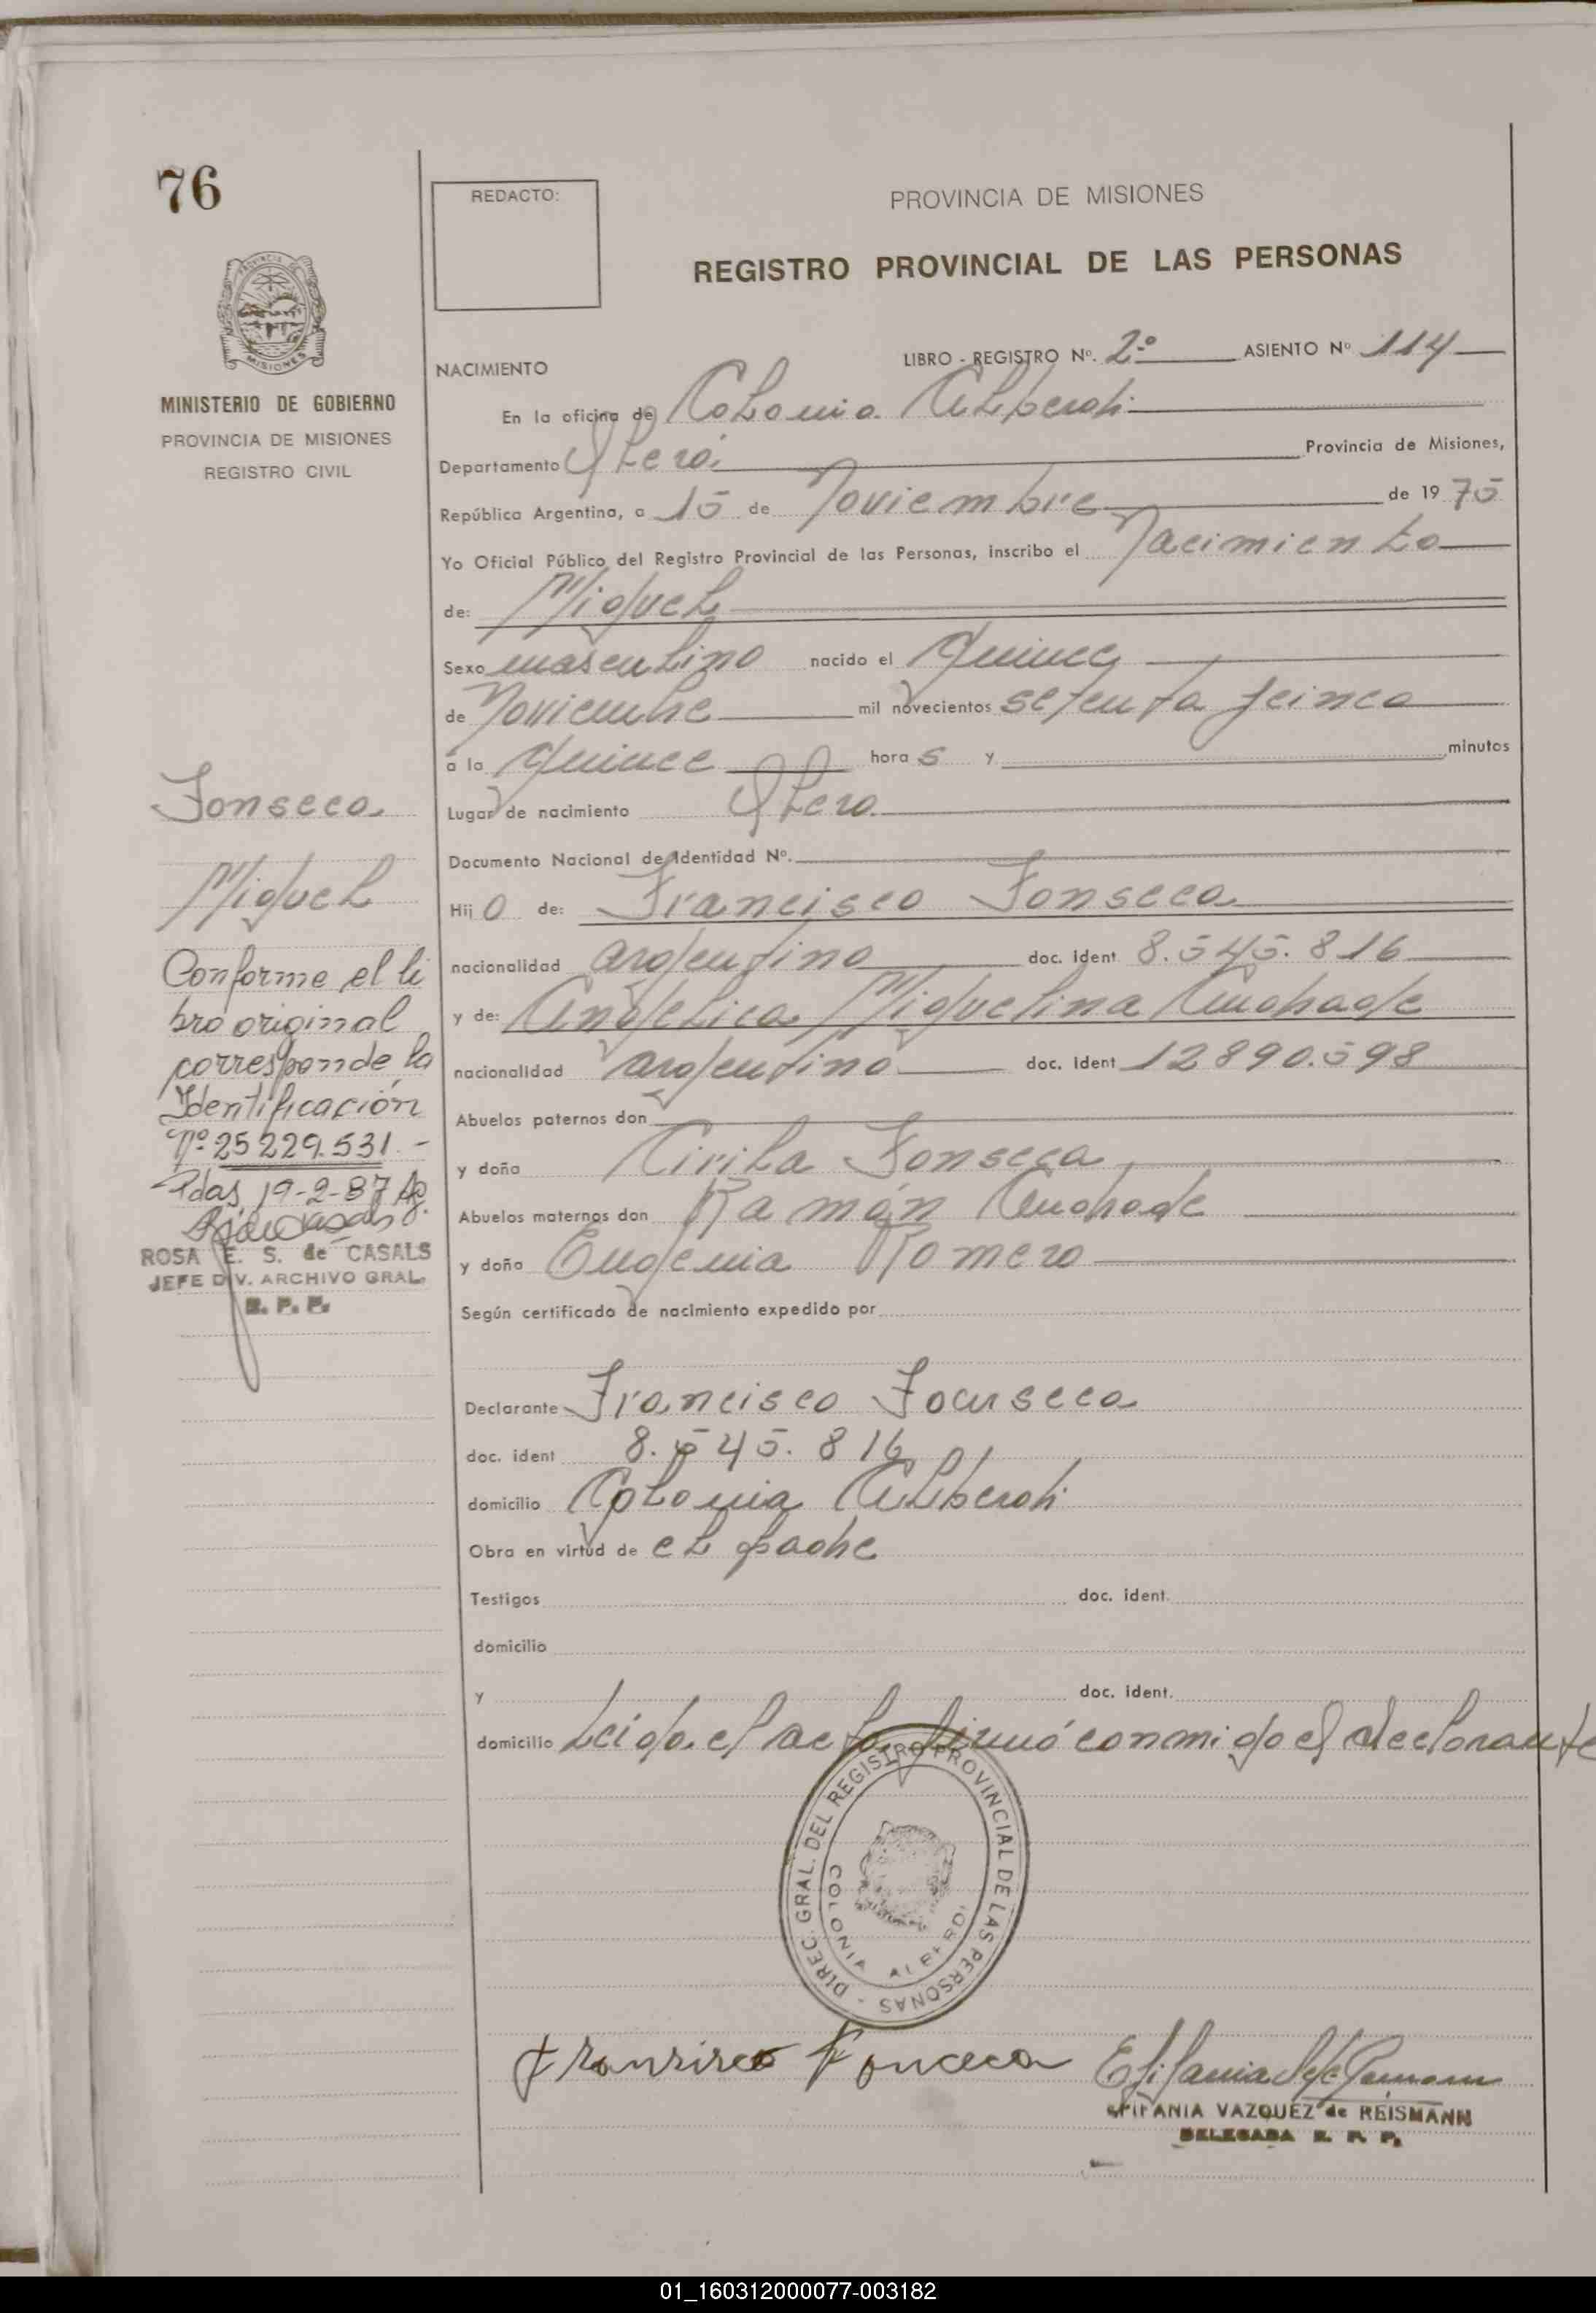 76
REDACTO:
PROVINCIA DE MISIONES
REGISTRO PROVINCIAL DE LAS PERSONAS
PROVINCIA DE
MISIONES
MINISTERIO DE GOBIERNO
PROVINCIA DE MISIONES
REGISTRO CIVIL
LIBRO - REGISTRO Nº. 2º ASIENTO Nº 114
NACIMIENTO
En la oficina de Colonia Alberdi
Departamento Oberá Provincia de Misiones,
República Argentina, a 15 de Noviembre de 1975
Yo Oficial Público del Registro Provincial de las Personas, inscribo el Nacimiento
de: Miguel
Sexo masculino nacido el Quince
de Noviembre mil novecientos setenta y cinco
a la quince horas y minutos
Lugar de nacimiento Obera
Documento Nacional de Identidad Nº.
Hijo de: Francisco Fonseca
nacionalidad argentino doc. ident. 8.545.816
y de: Angelica Miguelina Andrade
nacionalidad argentina doc. ident 12890.598
Abuelos paternos don
y doña Cirila Fonseca
Abuelos maternos don Ramón Andrade
y doña Eugenia Romero
Según certificado de nacimiento expedido por
Declarante Francisco Fonseca
doc. ident 8.545.816
domicilio Colonia Alberdi
Obra en virtud de el padre
Testigos doc. ident.
domicilio
y doc. ident.
domicilio Leida el acta firmó conmigo el declarante
Fonseca
Miguel
Conforme el li
bro original
corresponde la
Identificación
Nº 25229.531.-
Pdas, 19-2-87
ROSA E. S. de CASALS
JEFE DIV. ARCHIVO GRAL.
R. P. P.
DIREC. GRAL. DEL REGISTRO PROVINCIAL DE LAS PERSONAS -
COLONIA ALBERDI
Fransisco Fonceca
EPIFANIA VAZQUEZ de REISMANN
DELEGADA R. P. P.
01_160312000077-003182